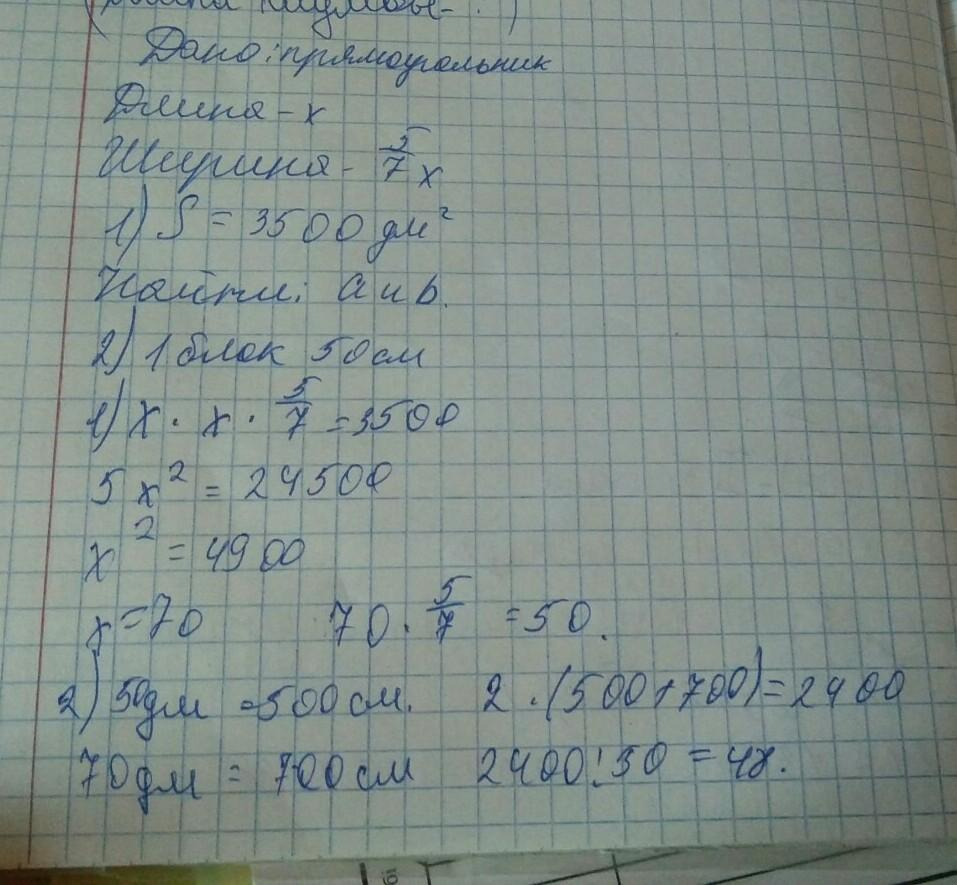 Дано: прямоугольник
Длина - x
Ширина - 5/7 x
1) S = 3500 дм²
Найти: a и b.
2) 1 блок 50 см
1) x · x · 5/7 = 3500
5x² = 24500
x² = 4900
x = 70 70 · 5/7 = 50.
2) 50 дм = 500 см. 2 · (500 + 700) = 2400
70 дм = 700 см 2400 : 50 = 48.